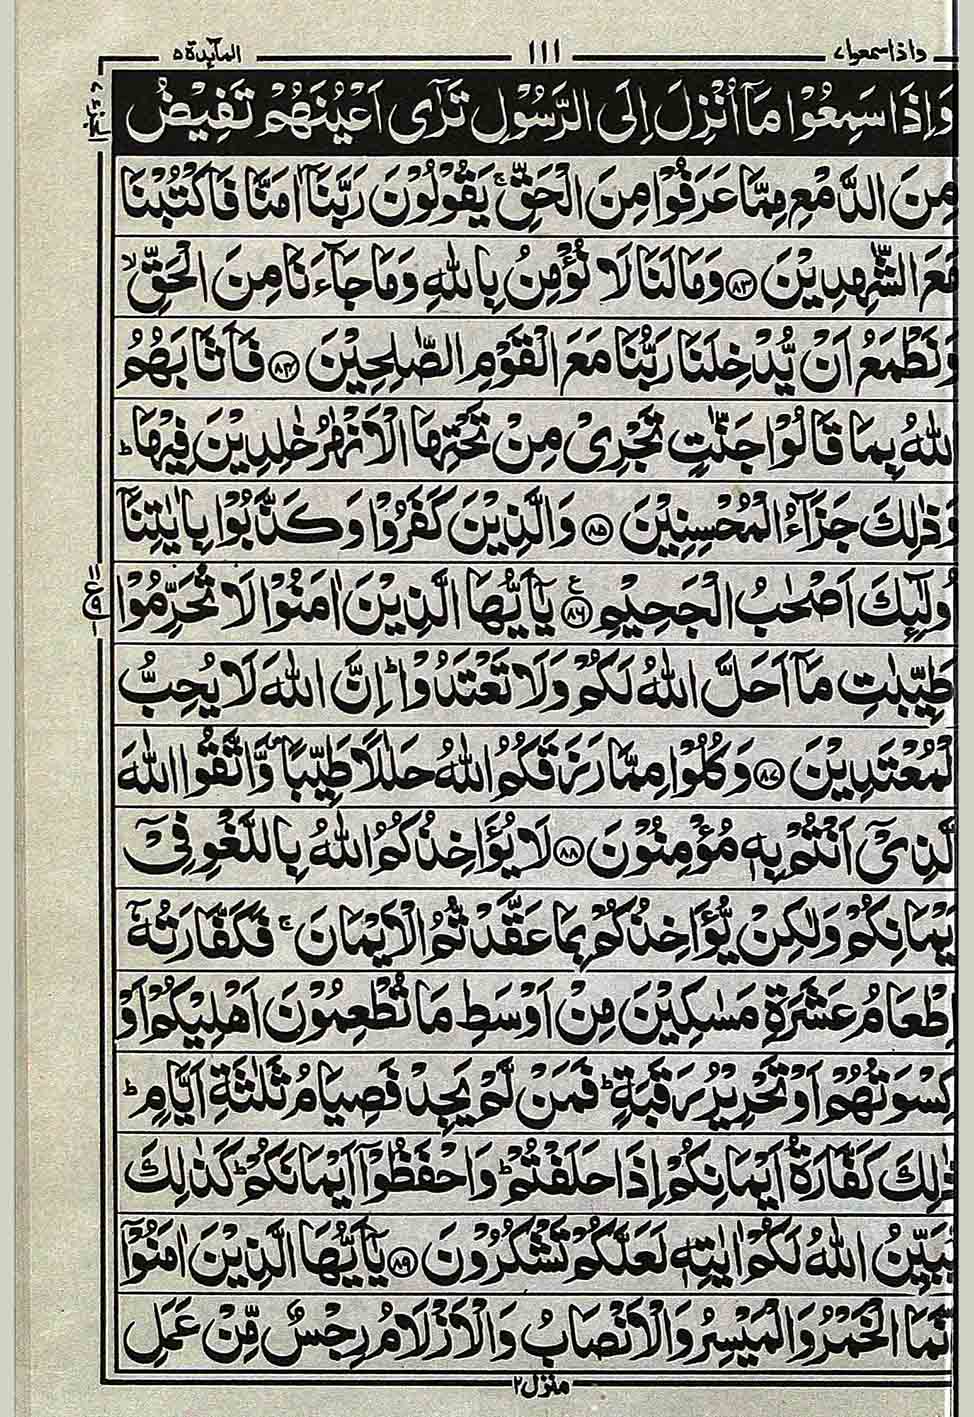 واذا سمعوا۷ ۱۱۱ المآئدة ۵
وَاِذَا سَمِعُوْا مَاۤ اُنْزِلَ اِلَى الرَّسُوْلِ تَرٰۤى اَعْيُنَهُمْ تَفِيْضُ
مِنَ الدَّمْعِ مِمَّا عَرَفُوْا مِنَ الْحَقِّ ۚ يَقُوْلُوْنَ رَبَّنَاۤ اٰمَنَّا فَاكْتُبْنَا
مَعَ الشّٰهِدِيْنَ ۝۸۳ وَمَا لَنَا لَا نُؤْمِنُ بِاللّٰهِ وَمَا جَآءَنَا مِنَ الْحَقِّ ۙ
وَنَطْمَعُ اَنْ يُّدْخِلَنَا رَبُّنَا مَعَ الْقَوْمِ الصّٰلِحِيْنَ ۝۸۴ فَاَثَابَهُمُ
اللّٰهُ بِمَا قَالُوْا جَنّٰتٍ تَجْرِيْ مِنْ تَحْتِهَا الْاَنْهٰرُ خٰلِدِيْنَ فِيْهَا ؕ
وَذٰلِكَ جَزَآءُ الْمُحْسِنِيْنَ ۝۸۵ وَالَّذِيْنَ كَفَرُوْا وَكَذَّبُوْا بِاٰيٰتِنَاۤ
ولٰٓئِكَ اَصْحٰبُ الْجَحِيْمِ ۝۸۶ ع يٰۤاَيُّهَا الَّذِيْنَ اٰمَنُوْا لَا تُحَرِّمُوْا
طَيِّبٰتِ مَاۤ اَحَلَّ اللّٰهُ لَكُمْ وَلَا تَعْتَدُوْا ؕ اِنَّ اللّٰهَ لَا يُحِبُّ
لْمُعْتَدِيْنَ ۝۸۷ وَكُلُوْا مِمَّا رَزَقَكُمُ اللّٰهُ حَلٰلًا طَيِّبًا ۪ وَّاتَّقُوا اللّٰهَ
لَّذِيْۤ اَنْتُمْ بِهٖ مُؤْمِنُوْنَ ۝۸۸ لَا يُؤَاخِذُكُمُ اللّٰهُ بِاللَّغْوِ فِيْۤ
يْمَانِكُمْ وَلٰكِنْ يُّؤَاخِذُكُمْ بِمَا عَقَّدْتُّمُ الْاَيْمَانَ ۚ فَكَفَّارَتُهٗۤ
اِطْعَامُ عَشَرَةِ مَسٰكِيْنَ مِنْ اَوْسَطِ مَا تُطْعِمُوْنَ اَهْلِيْكُمْ اَوْ
كِسْوَتُهُمْ اَوْ تَحْرِيْرُ رَقَبَةٍ ؕ فَمَنْ لَّمْ يَجِدْ فَصِيَامُ ثَلٰثَةِ اَيَّامٍ ؕ
ذٰلِكَ كَفَّارَةُ اَيْمَانِكُمْ اِذَا حَلَفْتُمْ ؕ وَاحْفَظُوْۤا اَيْمَانَكُمْ ؕ كَذٰلِكَ
يُبَيِّنُ اللّٰهُ لَكُمْ اٰيٰتِهٖ لَعَلَّكُمْ تَشْكُرُوْنَ ۝۸۹ يٰۤاَيُّهَا الَّذِيْنَ اٰمَنُوْۤا
نَّمَا الْخَمْرُ وَالْمَيْسِرُ وَالْاَنْصَابُ وَالْاَزْلَامُ رِجْسٌ مِّنْ عَمَلِ
منزل ۲